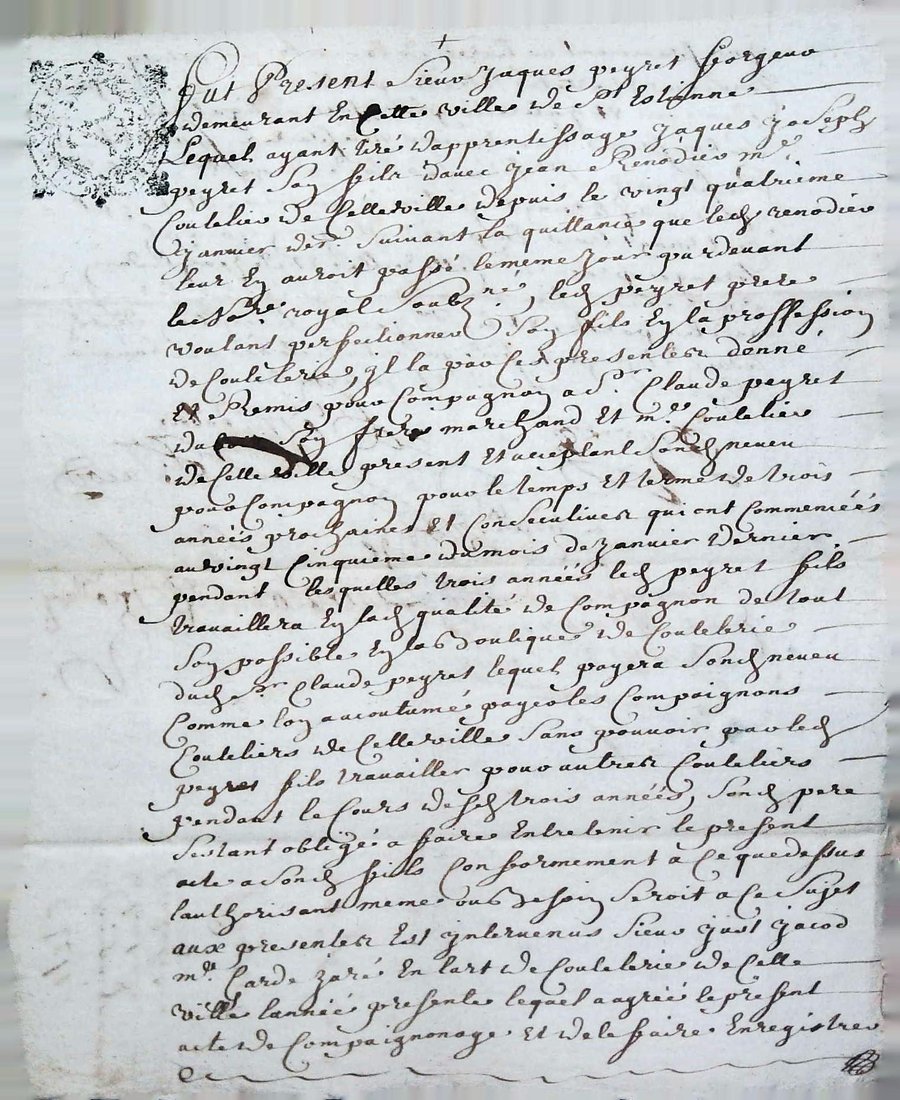 Fut Present Sieur Jaques peyret forgeur
demeurant En Cette ville de St Estienne
Lequel ayant tiré d'apprentissage Jaques Joseph
peyret son fils d'avec jean Renodier me
Coutelier de Cette ville depuis le vingt quatrieme
janvier der. suivant la quittance que led renodier
leur en auroit passé le meme jour par devant
le Nore royal soubz né, led peyret pere
voulant perfectionner son fils En la proffession
de Coutelerie, jl la par Ces presentes donné
Et Remis pour Compagnon a Sr Claude peyret
son frere marchand Et me Coutelier
de Cette ville present Et acceptant sond neveu
pour Compagnon pour le temps Et terme de trois
années prochaines Et Consecutives qui ont Commencées
au vingt Cinquieme du mois de janvier dernier
pendant lesquelles trois années led peyret fils
travaillera En lad qualité de Compagnon de tout
son possible En la Boutique de Coutelerie
dud sr Claude peyret lequel payera sond neveu
Comme lon a acoutumé payer les Compaignons
Couteliers de Cette ville sans pouvoir par led
peyret fils travailler pour autres Couteliers
pendant le Cours desd trois années, sond pere
sestant obligé a faire Entretenir le present
acte a sond fils Conformement a Ce que dessus
lauthorisant meme ou Besoin seroit a Ce sujet
aux presentes Est jntervenus Sieur just jacod
me Garde juré En lart de Coutelerie de Cette
ville lannée presente lequel a agréé le present
acte de Compaignonage Et de le faire Enregistrer